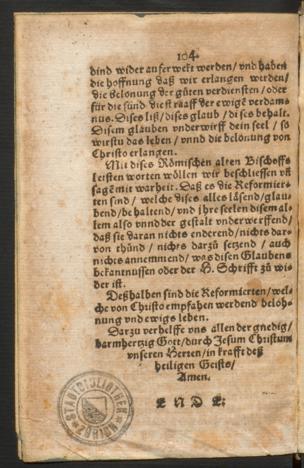 104.
dind wider auferwekt werden/ vnd haben
die hoffnung daß wir erlangen werden/
die belonung der güten verdiensten/ oder
für die sünd die straaff der ewigē verdam⸗
nus. Dises liß/ dises glaub/ dises behalt.
Disem glauben vnderwirff dein seel/ so
wirstu das leben/ vnnd die belonung von
Christo erlangen.
Mit dises Römischen alten Bischoffs
leisten worten wöllen wir beschliessen vñ
sagē mit warheit. Daß es die Reformier⸗
ten sind/ welche dises alles läsend/ glau⸗
bend/ behaltend/ vnd ihre seelen disem al⸗
lem also vnnd der gestalt vnderwerffend/
daß sie daran nichts enderend/ nichts dar⸗
von thünd/ nichts darzü setzend/ auch
nichts annemmend/ was disen Glaubens
bekantnussen oder der H. Schrifft zü wi⸗
der ist.
Deßhalben sind die Reformierten/ wel⸗
che von Christo empfahen werdend beloh⸗
nung vnd ewigs leben.
Darzu verhelffe vns allen der gnedig/
barmhertzig Gott/ durch Jesum Christum
vnseren Herren/ in krafft deß
heiligen Geists/
Amen.
ENDE.
STADTBIBLIOTHEK
ZÜRICH